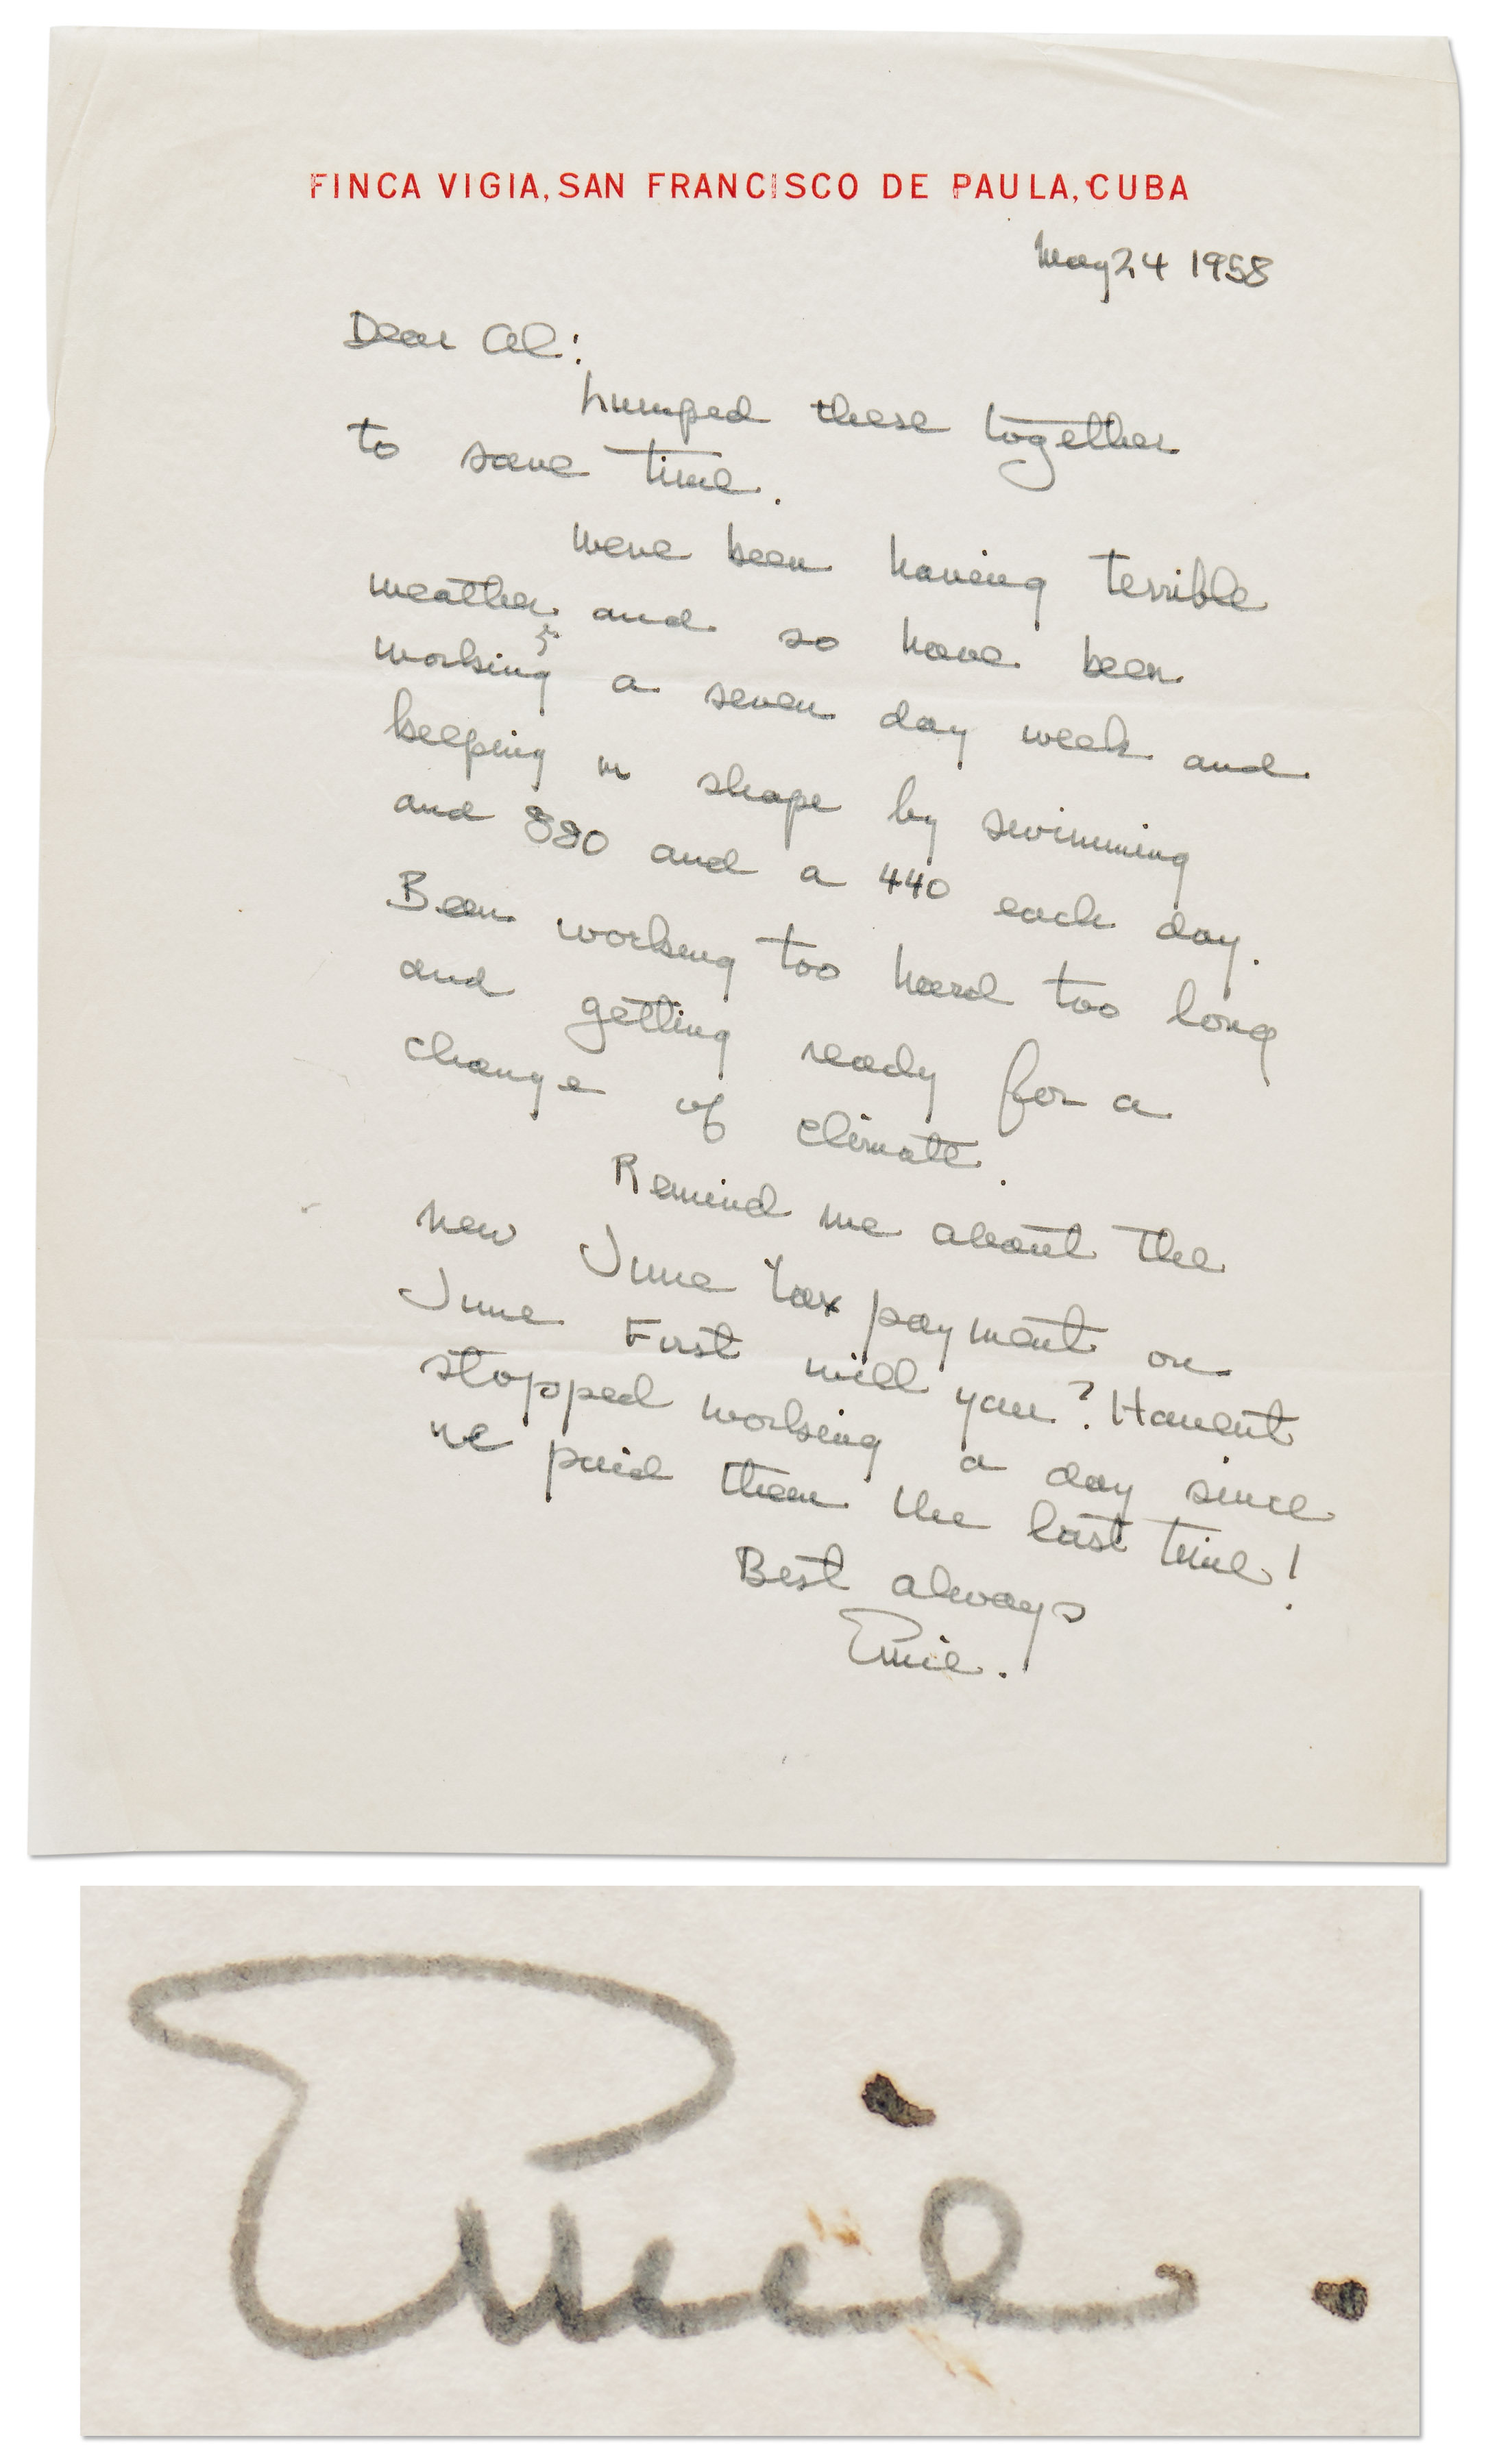 FINCA VIGIA, SAN FRANCISCO DE PAULA, CUBA
May 24 1958
Dear Al:
Lumped these together
to save time.
Weve been having terrible
weather and so have been
working a seven day week and
keeping in shape by swimming
and 880 and a 440 each day.
Been working too hard too long
and getting ready for a
change of climate.
Remind me about the
new June tax payment on
June First will you? Havent
stopped working a day since
we paid them the last time!
Best always
Ernie.
Ernie.